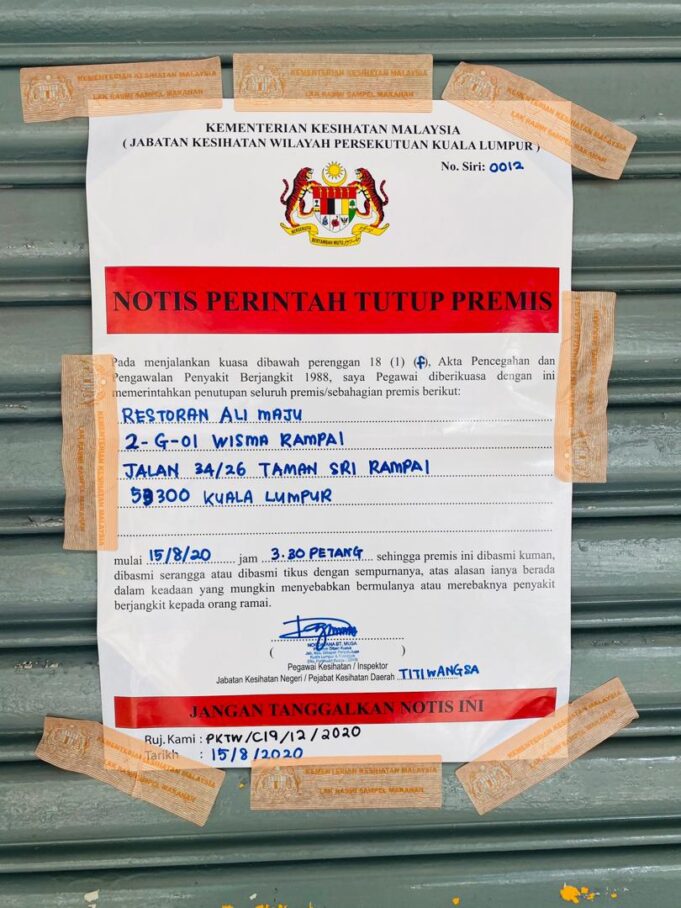 KEMENTERIAN KESIHATAN MALAYSIA
LAK RASMI SAMPEL MAKANAN
KEMENTERIAN KESIHATAN MALAYSIA
LAK RASMI SAMPEL MAKANAN
KEMENTERIAN KESIHATAN MALAYSIA
( JABATAN KESIHATAN WILAYAH PERSEKUTUAN KUALA LUMPUR )
No. Siri: 0012
BERTAMBAH MUTU
NOTIS PERINTAH TUTUP PREMIS
Pada menjalankan kuasa dibawah perenggan 18 (1) (f), Akta Pencegahan dan
Pengawalan Penyakit Berjangkit 1988, saya Pegawai diberikuasa dengan ini
memerintahkan penutupan seluruh premis/sebahagian premis berikut:
RESTORAN ALI MAJU
2-G-01 WISMA RAMPAI
JALAN 34/26 TAMAN SRI RAMPAI
53300 KUALA LUMPUR
mulai 15/8/20 jam 3.30 PETANG sehingga premis ini dibasmi kuman,
dibasmi serangga atau dibasmi tikus dengan sempurnanya, atas alasan ianya berada
dalam keadaan yang mungkin menyebabkan bermulanya atau merebaknya penyakit
berjangkit kepada orang ramai.
( )
Pegawai Kesihatan / Inspektor
Jabatan Kesihatan Negeri / Pejabat Kesihatan Daerah TITIWANGSA
JANGAN TANGGALKAN NOTIS INI
Ruj.Kami : PKTW/C19/12/2020
Tarikh : 15/8/2020
KEMENTERIAN KESIHATAN MALAYSIA
LAK RASMI SAMPEL MAKANAN